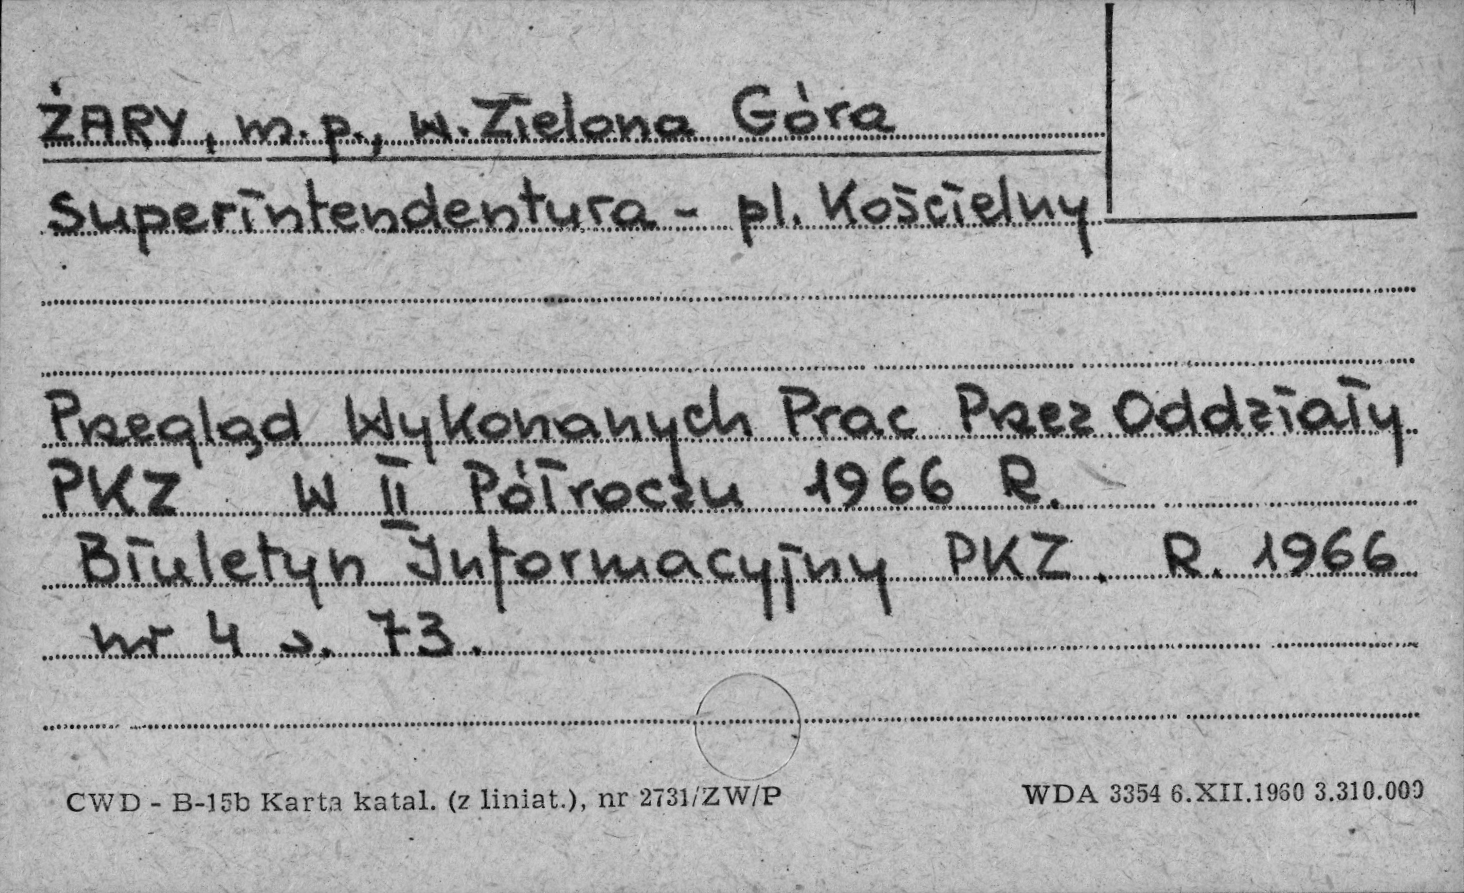 ŻARY, m.p., w. Zielona Góra
Superintendentura - pl. Kościelny
Przegląd Wykonanych Prac Przez Oddziały
PKZ w II Półroczu 1966 R.
Biuletyn Informacyjny PKZ. R. 1966
nr 4 s. 73.
CWD - B-15b Karta katal. (z liniat.), nr 2731/ZW/P
WDA 3354 6.XII.1960 3.310.000